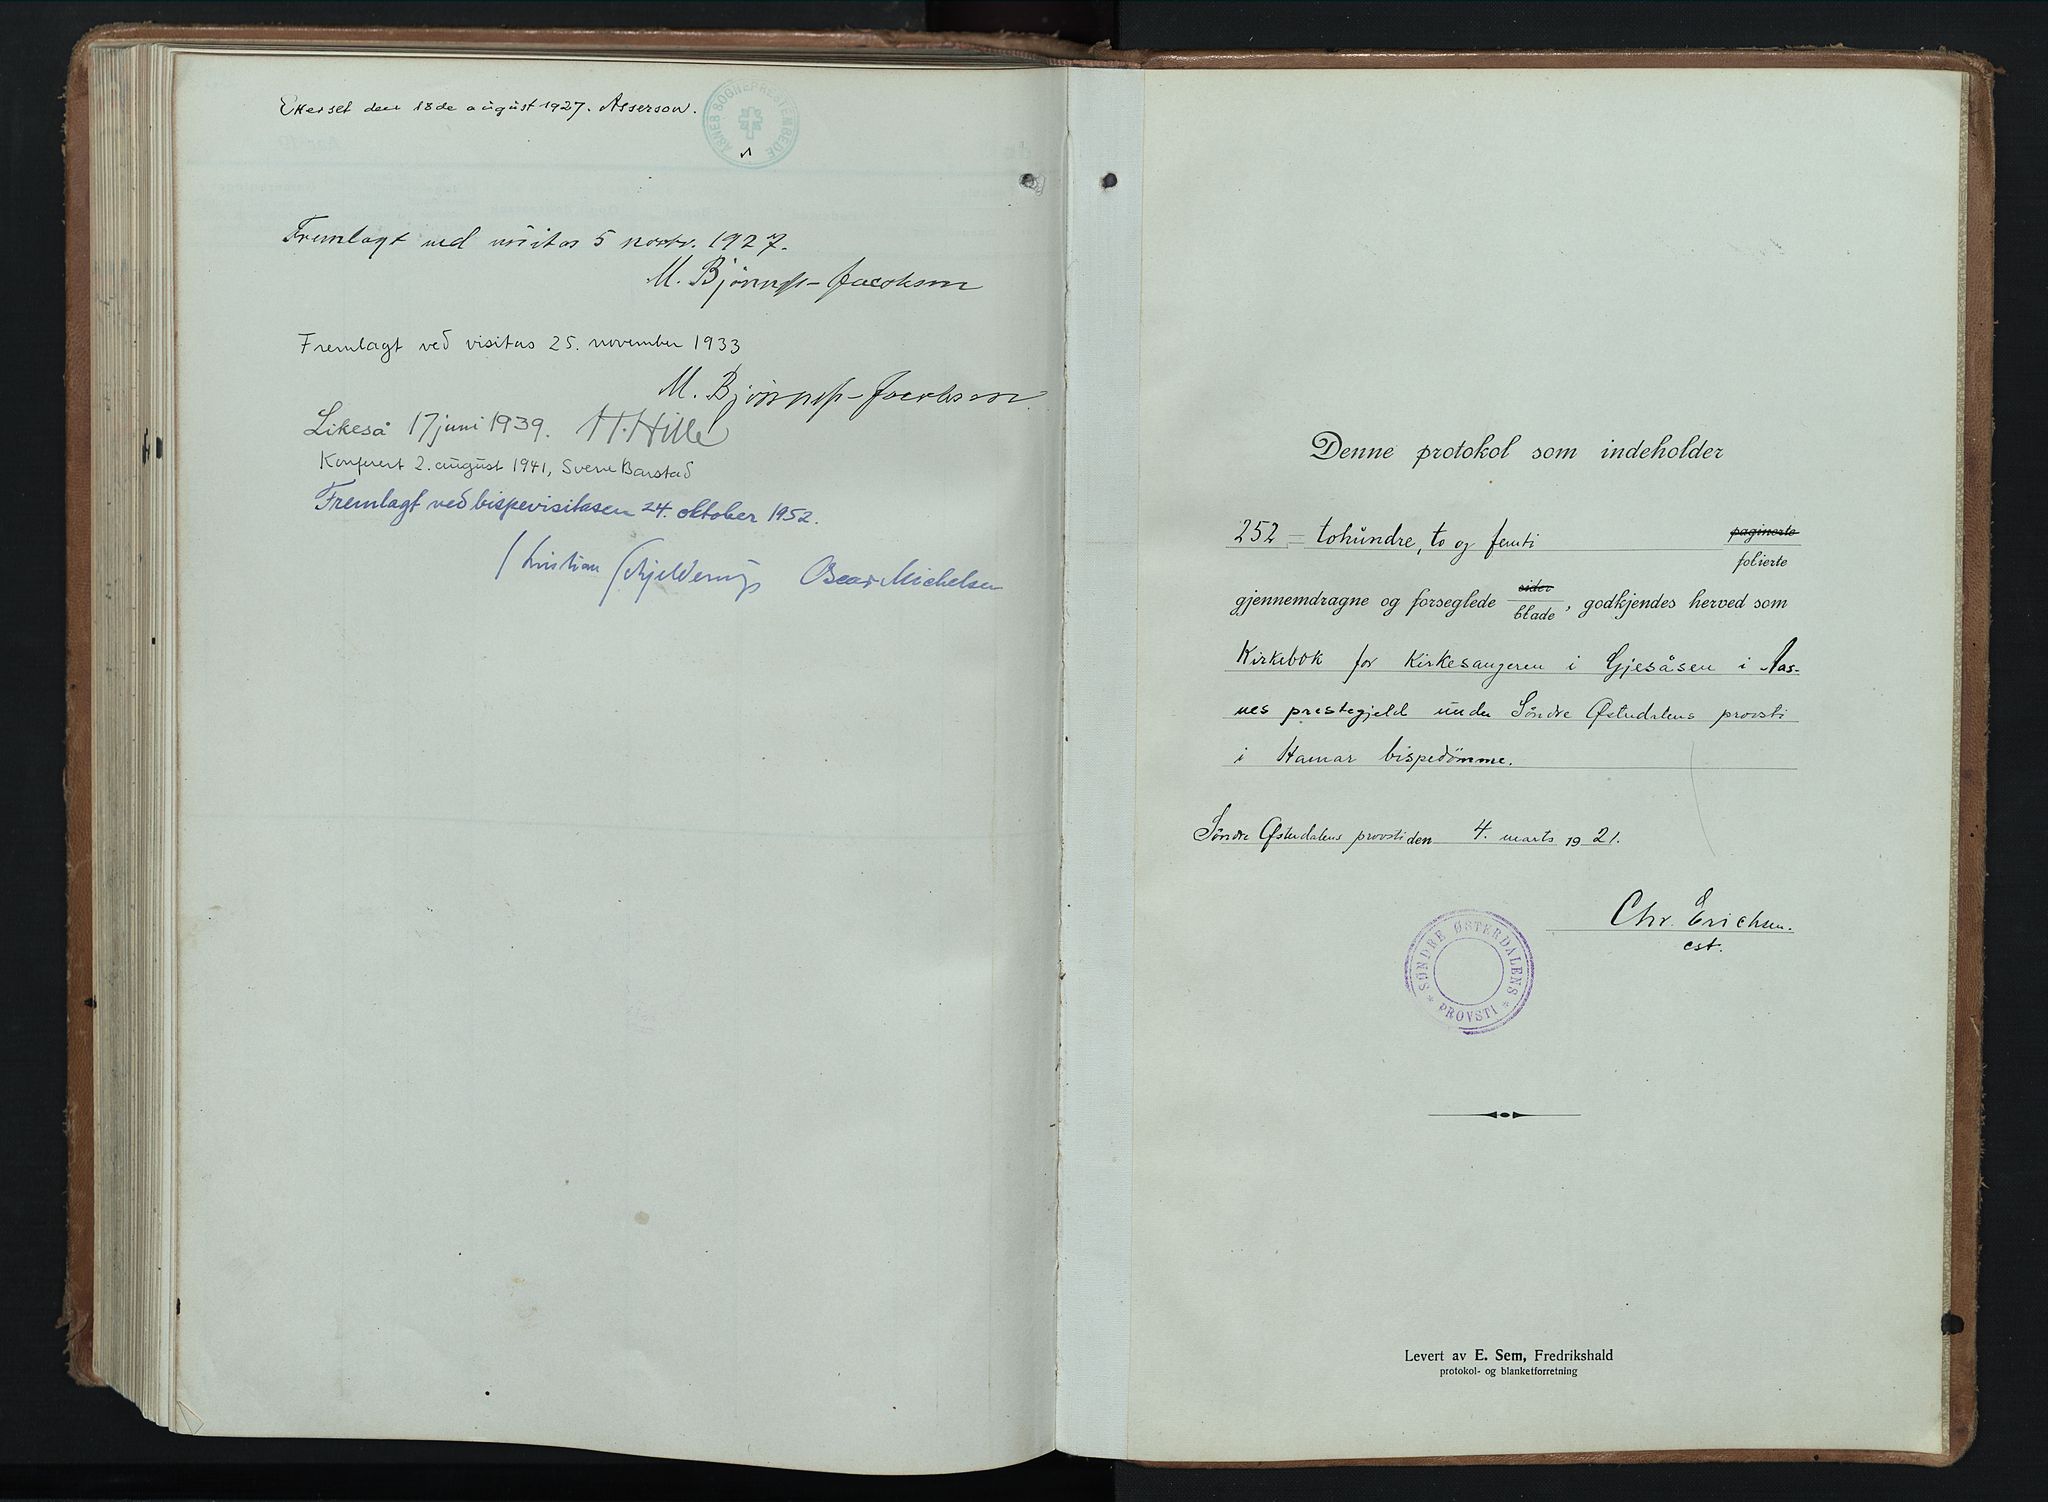 Efterset den 18de august 1927. Asserson.
ÅSNES SOGNEPRESTEMBEDE
Fremlagt ved visitas 5 novbr. 1927.
M. Bjønnes-Jacobsen
Fremlagt ved visitas 25. november 1933
M. Bjønnes-Jacobsen
Likeså 17 juni 1939. H. Hille
Konferert 2. august 1941, Sverre Barstad
Fremlagt ved bispevisitasen 24. oktober 1952.
Kristian Schjelderup Oscar Michelsen
Denne protokol som indeholder
252 = tohundre, to og femti paginerte
folierte
gjennemdragne og forseglede sider
blade, godkjendes herved som
Kirkebok for Kirkesangeren i Gjesåsen i Aas-
nes prestegjeld under Söndre Østerdalens provsti
i Hamar bispedömme.
Söndre Østerdalens provsti den 4. marts 1921.
Chr. Erichsen.
cst.
SØNDRE ØSTERDALENS
* PROVSTI *
Levert av E. Sem, Fredrikshald
protokol- og blanketforretning